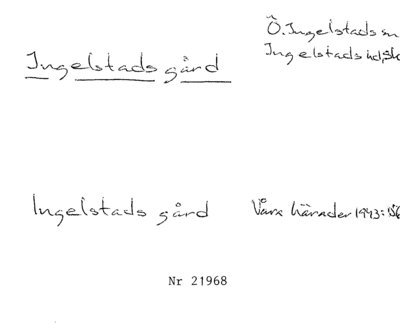 Ö. Ingelstads sn
Ingelstads hd, Sk
Ingelstads gård
Ingelstads gård Våra härader 1943:
Nr 21968